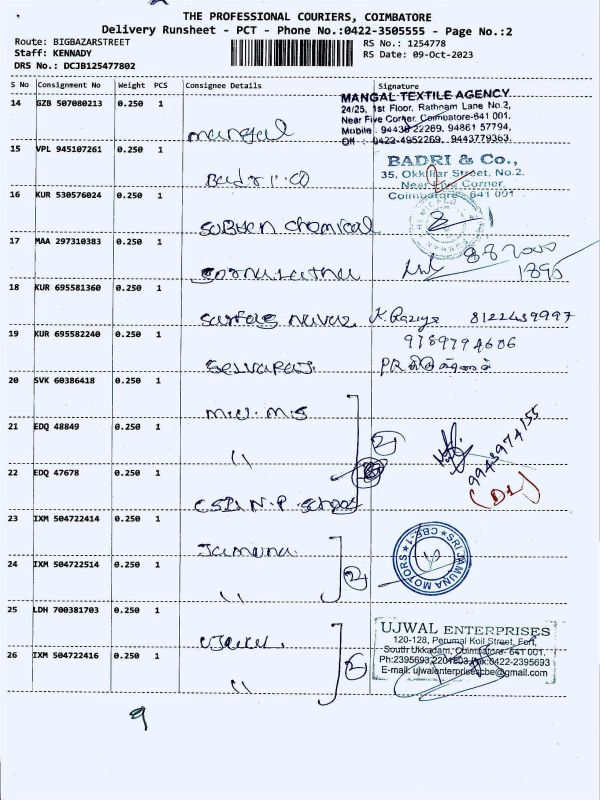 THE PROFESSIONAL COURIERS, COIMBATORE
Delivery Runsheet - PCT - Phone No.:0422-3505555 - Page No.:2
Route: BIGBAZARSTREET
RS No.: 1254778
Staff: KENNADY
RS Date: 09-Oct-2023
DRS No.: DCJB125477802
S No Consignment No Weight PCS Consignee Details Signature
14 GZB 507080213 0.250 1 Mangal
MANGAL TEXTILE AGENCY
24/25, 1st Floor, Rathnam Lane No.2,
Near Five Corner, Coimbatore-641 001.
Mobile : 94430 22269, 94861 57794,
Off : 0422-4952269, 9443779363.
15 VPL 945107261 0.250 1 Badri CO
BADRI & Co.,
35, Okkiliar Street, No.2.
Near Five Corner,
Coimbatore - 641 001
16 KUR 530576024 0.250 1 Subhen chemical
17 MAA 297310383 0.250 1
18 KUR 695581360 0.250 1 Sarfas navas K. Raziya 8122439997
19 KUR 695582240 0.250 1 Selvaraj.
9789794606
20 SVK 60386418 0.250 1 M.W.M.S
21 EDQ 48849 0.250 1 "
2
9943974155
22 EDQ 47678 0.250 1 CSI N.P. School
23 IXM 504722414 0.250 1 Jamuna
SRI JAMUNA MOTORS CBE-1
24 IXM 504722514 0.250 1 "
2
25 LDH 700381703 0.250 1
UJWAL ENTERPRISES
120-128, Perumal Koil Street, Fort,
South Ukkadam, Coimbatore- 641 001.
Ph:2395693,2201803 Fax:0422-2395693
E-mail: ujwalenterprisescbe@gmail.com
26 IXM 504722416 0.250 1 "
2
9